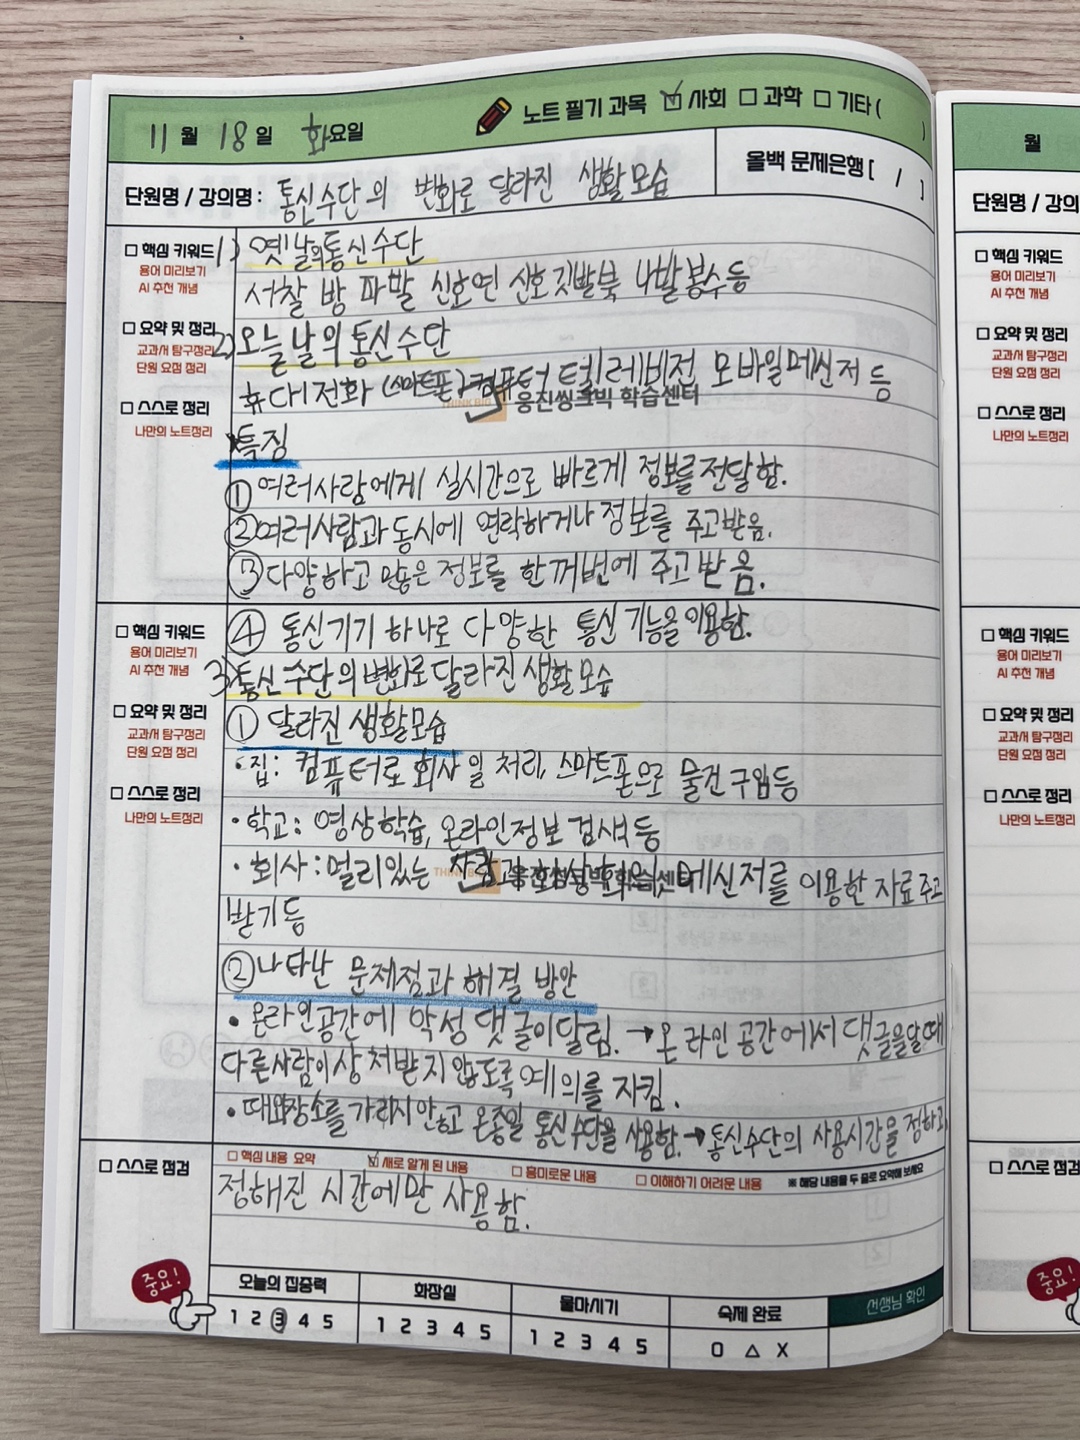 11월 18일 화요일
노트 필기 과목 ☑사회 □과학 □기타( )
단원명 / 강의명 : 통신수단의 변화로 달라진 생활모습
올백 문제은행 [ / ]
□ 핵심 키워드
용어 미리보기
AI 추천 개념
□ 요약 및 정리
교과서 탐구정리
단원 요점 정리
□ 스스로 정리
나만의 노트정리
1) 옛날의 통신수단
서찰 방 파발 신호연 신호깃발 북 나팔 봉수 등
2) 오늘날의 통신수단
휴대전화 (스마트폰) 컴퓨터 텔레비전 모바일메신저 등
THINK BIG 웅진씽크빅 학습센터
특징
① 여러사람에게 실시간으로 빠르게 정보를 전달함.
② 여러사람과 동시에 연락하거나 정보를 주고받음.
③ 다양하고 많은 정보를 한꺼번에 주고받음.
□ 핵심 키워드
용어 미리보기
AI 추천 개념
□ 요약 및 정리
교과서 탐구정리
단원 요점 정리
□ 스스로 정리
나만의 노트정리
④ 통신기기 하나로 다양한 통신 기능을 이용함.
3) 통신 수단의 변화로 달라진 생활모습
① 달라진 생활모습
· 집 : 컴퓨터로 회사 일 처리, 스마트폰으로 물건 구입 등
· 학교 : 영상학습, 온라인정보 검색 등
· 회사 : 멀리있는 사람과 화상 회의, 메신저를 이용한 자료 주고
THINK BIG 웅진씽크빅 학습센터
받기 등
② 나타난 문제점과 해결 방안
· 온라인공간에 악성 댓글이 달림. → 온라인 공간에서 댓글을 달 때
다른사람이 상처받지 않도록 예의를 지킴.
· 때와 장소를 가리지 않고 온종일 통신수단을 사용함. → 통신수단의 사용시간을 정하고
□ 스스로 점검
□ 핵심 내용 요약 ☑ 새로 알게 된 내용 □ 흥미로운 내용 □ 이해하기 어려운 내용 ※ 해당 내용을 두 줄로 요약해 보세요
정해진 시간에만 사용함.
중요!
오늘의 집중력 화장실 물마시기 숙제 완료 선생님 확인
1 2 3 4 5 1 2 3 4 5 1 2 3 4 5 O △ X
월
단원명 / 강의
□ 핵심 키워드
용어 미리보기
AI 추천 개념
□ 요약 및 정리
교과서 탐구정리
단원 요점 정리
□ 스스로 정리
나만의 노트정리
□ 핵심 키워드
용어 미리보기
AI 추천 개념
□ 요약 및 정리
교과서 탐구정리
단원 요점 정리
□ 스스로 정리
나만의 노트정리
□ 스스로 점검
중요!